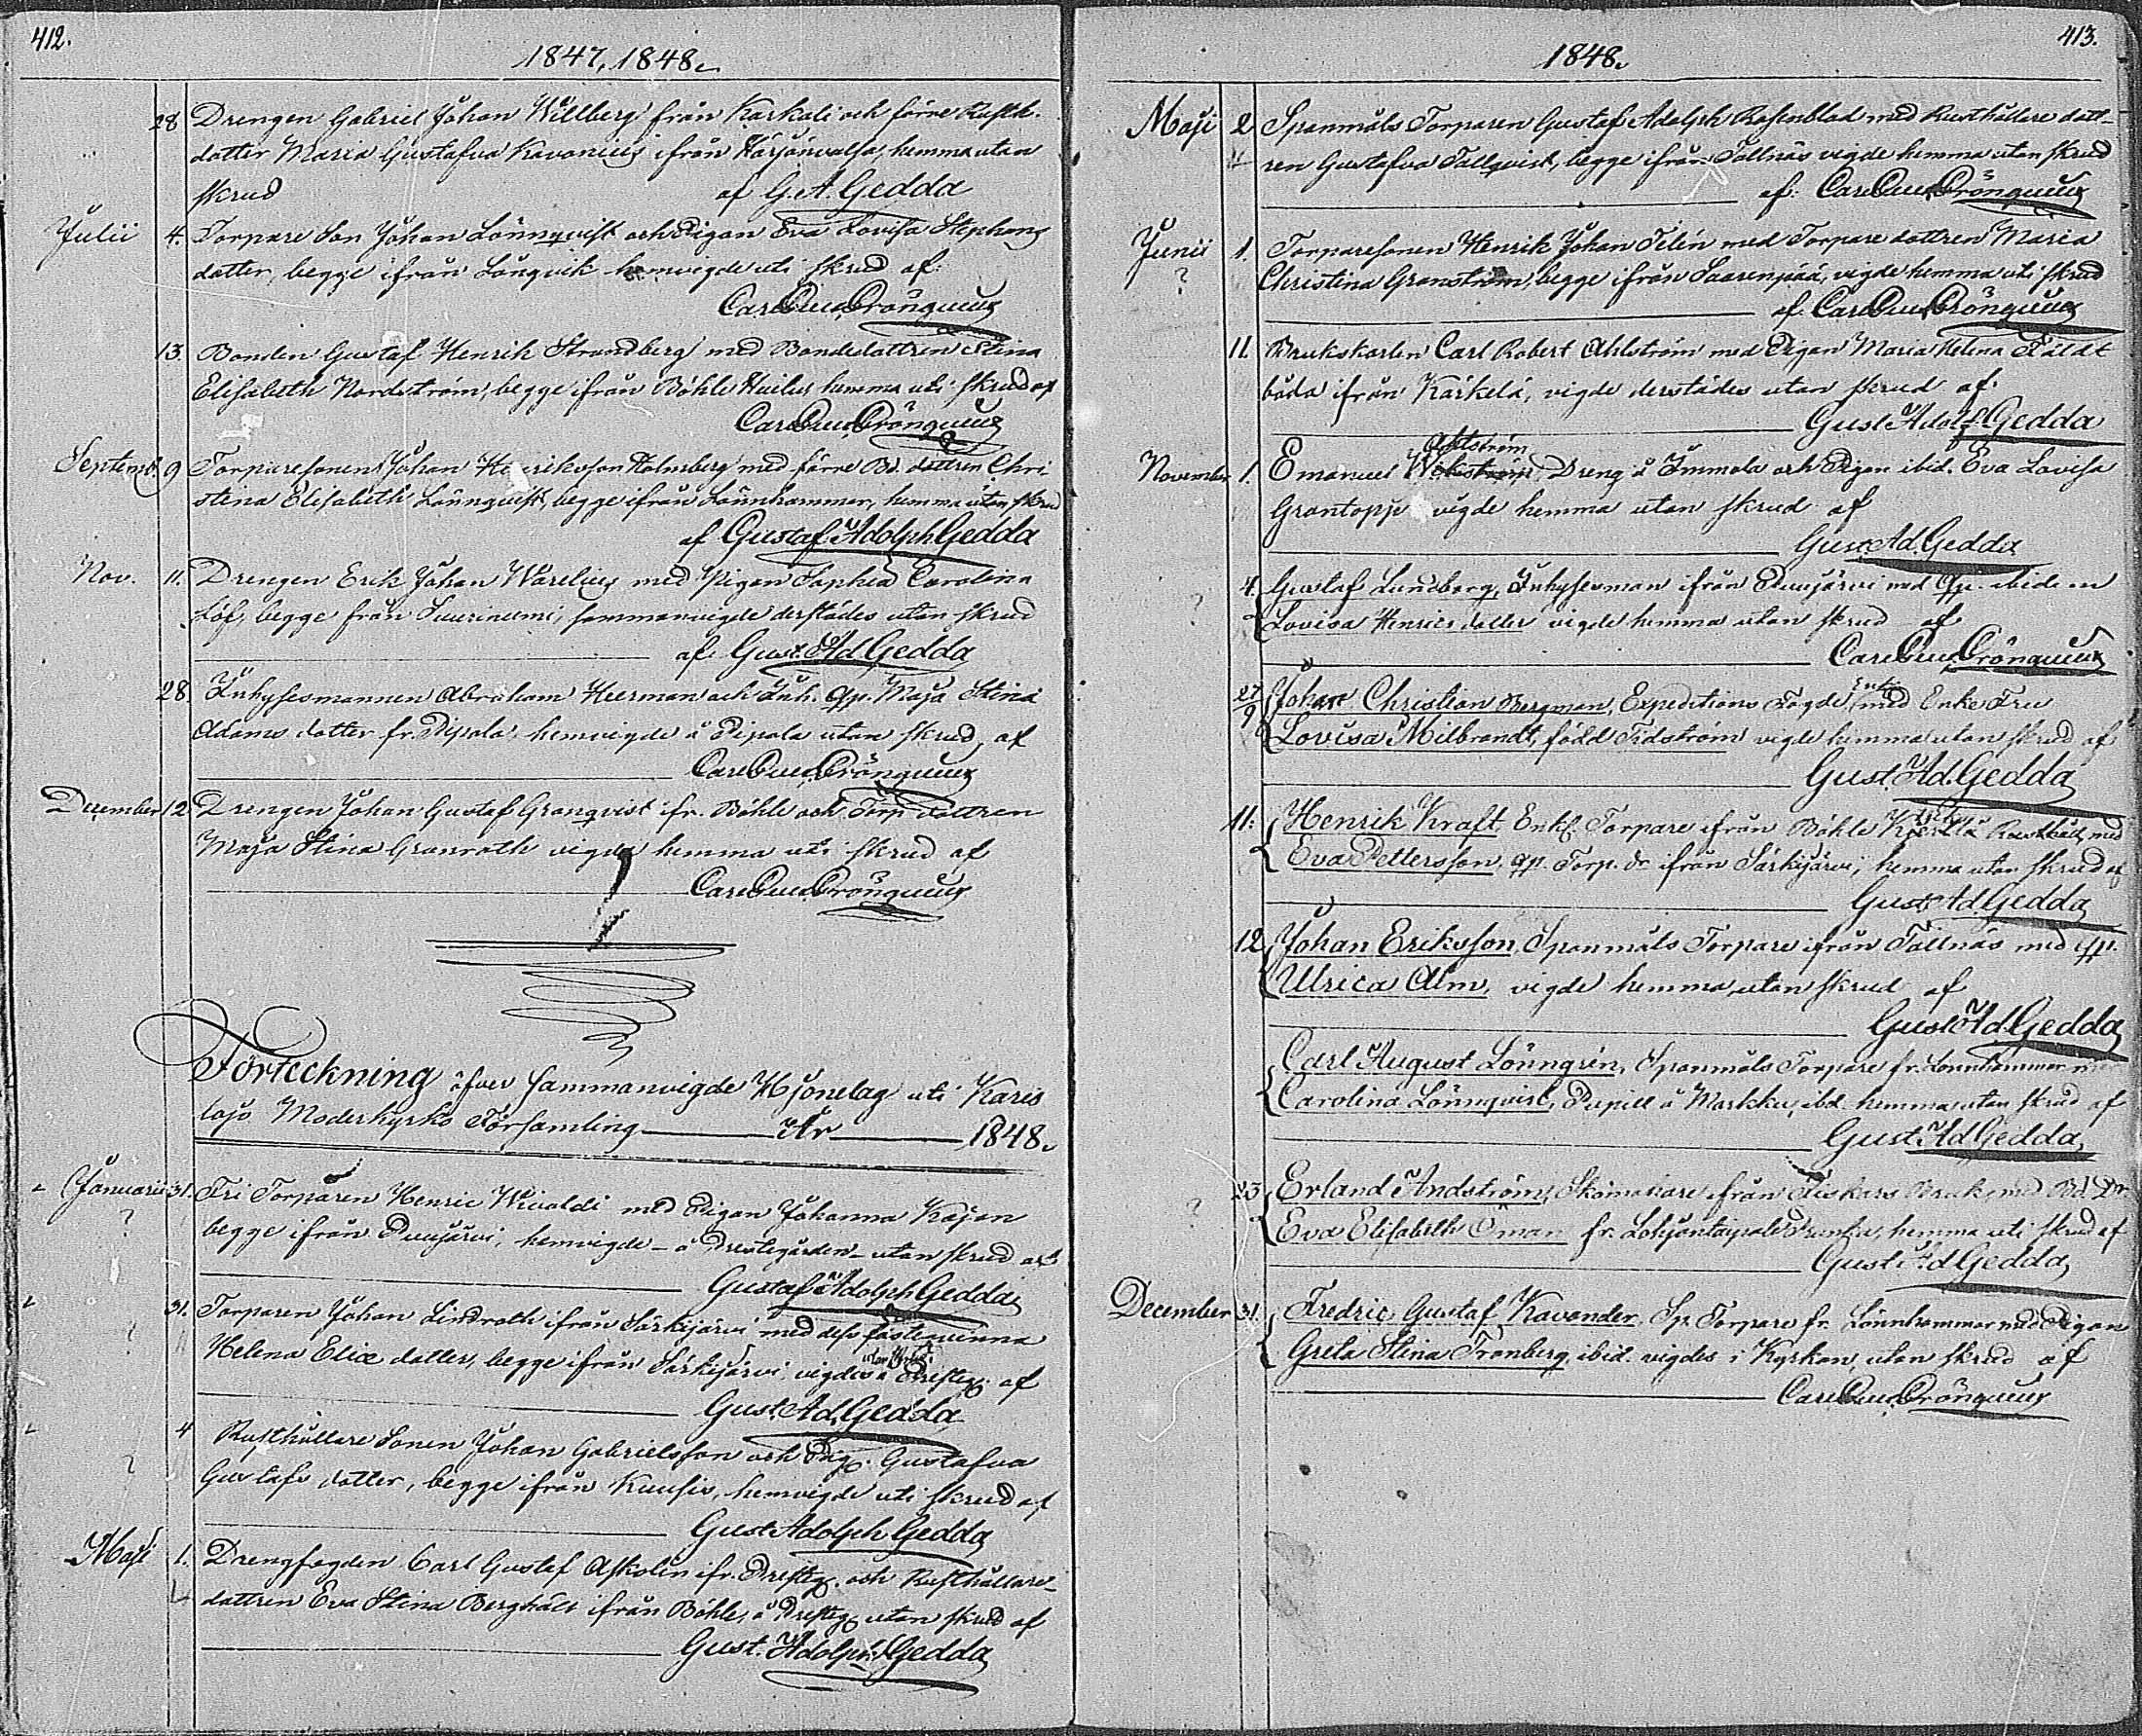 412.
1847, 1848.
28 Drengen Gabriel Johan Willberg från Karkali och förre Rusth.
dotter Maria Gustafva Kavonius ifrån Härjänvalsa, hemma utan
skrud af G. A. Gedda
Julii 4. Torpare Son Johan Lönnqvist och Pigan Eva Lovisa Stephans
dotter, begge ifrån Långvik hemvigde uti skrud af:
Carl Cröngvist
13. Bonden Gustaf Henrik Strandberg med Bondedottren Stina
Elisabeth Nordström, begge ifrån Böhle Huilus hemma uti skrud af
Carl
Septemb. 9 Torparesonen Johan Henriksson Holmberg med förre Bd. dottren Chri
stina Elisabeth Lönnqvist, begge ifrån Lönnhammar, hemma utan skrud
af Gustaf Adolph Gedda
Nov. 11. Drengen Erik Johan Warelius med Pigan Sophia Carolina
Löf, begge från Suurniemi, sammanvigde derstädes utan skrud
af Gust. Ad. Gedda
28. Inhysesmannen Abraham Heerman och Inh. qp. Maja Stina
Adams dotter fr. Pipola, hemvigde å Pipola utan skrud, af
Carl
December 12. Drengen Johan Gustaf Granqvist ifr. Böhle och Torp. dottren
Maja Stina Granroth vigde hemma uti skrud af
Carl
Förteckning öfver Sammanvigde Hjonelag uti Karis
lojo Moderkyrko Församling År 1848.
Januarii 31. Fri Torparen Henric Wivaldi med Pigan Johanna Kajan
? begge ifrån Puujärvi, hemvigde - å Prestegården - utan skrud af
Gustaf Adolph Gedda
31. Torparen Johan Lindroth ifrån Särkijärvi med dess fästeqvinna
Helena Eliæ dotter, begge ifrån Särkijärvi vigde å Presteg. af
Gust. Ad. Gedda
4 Rusthållare Sonen Johan Gabrielsson och Pig. Gustafva
? Gustafs dotter, begge ifrån Kuusis, hemvigde uti skrud af
Gust Adolph Gedda
Maji 1. Drengfogden Carl Gustaf Askolin ifr. Presteg. och Rusthållare-
dottren Eva Stina Berghäll ifrån Böhle, å Presteg. utan skrud af
Gust. Adolph Gedda
413.
1848.
Maji 2 Spanmåls Torparen Gustaf Adolph Rosenblad med Rusthållare dott-
ren Gustafva Tallqvist, begge ifrån Tallnäs vigde hemma utan skrud
af: Carl
Junii 1. Torparesonen Henrik Johan Telén med Torpare dottren Maria
? Christina Granström, begge ifrån Saarenpää, vigde hemma uti skrud
af. Carl
11. Brukskarlen Carl Robert Ahlström med Pigan Maria Helena Fäldt
båda ifrån Kärkelä, vigde derstädes utan skrud af
Gust. Adolf Gedda
Ahlström
November 1. Emanuel Dreng å Immola och Pigan ibid. Eva Lovisa
Grantopp vigde hemma utan skrud af
Gust Ad Gedda
4. Gustaf Lundberg, Inhysesman ifrån Puujärvi med qp. ibidem
? Lovisa Henrics dotter vigde hemma utan skrud af
Carl
27/9 Johan Christian Bergman, Expeditions Fogde, med Enke Fru
Lovisa Milbrandt, född Tidström vigde hemma utan skrud af
Gust. Ad. Gedda
11. Henrik Kraft, Enkl. Torpare ifrån Böhle med
Eva Pettersson, qp. Torp. dr ifrån Särkijärvi, hemma utan skrud af
Gust Ad Gedda
12. Johan Eriksson, Spanmåls Torpare ifrån Tallnäs med qp.
Ulrica Alm, vigde hemma utan skrud af
Gust Ad Gedda
Carl August Lönngrén, Spanmåls Torpare fr. Lönnhammar
Carolina Lönnqvist, Pupill å Markku, ibd. hemma utan skrud af
Gust Ad Gedda
23. Erland Andström, Skomakare ifrån Fiskars Bruk, med Bd. Dr.
? Eva Elisabeth Öman fr. Lohjantaipale hemma uti skrud af
Gust Ad Gedda
December 31. Fredric Gustaf Kavander, Sp. Torpare fr. Lönnhammar med Pigan
Greta Stina Tranberg ibid. vigdes i Kyrkan utan skrud af
Carl